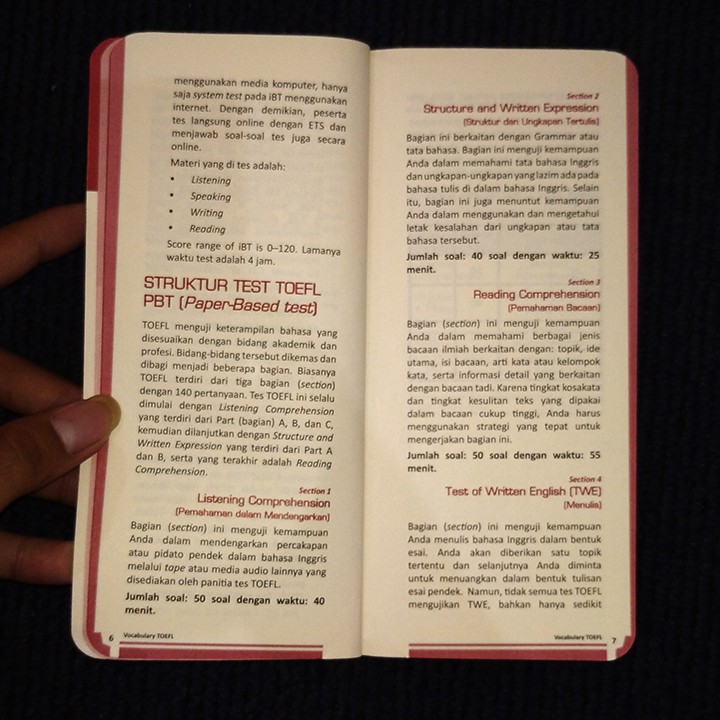 menggunakan media komputer, hanya
saja system test pada iBT menggunakan
internet. Dengan demikian, peserta
tes langsung online dengan ETS dan
menjawab soal-soal tes juga secara
online.
Materi yang di tes adalah:
• Listening
• Speaking
• Writing
• Reading
Score range of iBT is 0–120. Lamanya
waktu test adalah 4 jam.
STRUKTUR TEST TOEFL
PBT (Paper-Based test)
TOEFL menguji keterampilan bahasa yang
disesuaikan dengan bidang akademik dan
profesi. Bidang-bidang tersebut dikemas dan
dibagi menjadi beberapa bagian. Biasanya
TOEFL terdiri dari tiga bagian (section)
dengan 140 pertanyaan. Tes TOEFL ini selalu
dimulai dengan Listening Comprehension
yang terdiri dari Part (bagian) A, B, dan C,
kemudian dilanjutkan dengan Structure and
Written Expression yang terdiri dari Part A
dan B, serta yang terakhir adalah Reading
Comprehension.
Section 1
Listening Comprehension
(Pemahaman dalam Mendengarkan)
Bagian (section) ini menguji kemampuan
Anda dalam mendengarkan percakapan
atau pidato pendek dalam bahasa Inggris
melalui tape atau media audio lainnya yang
disediakan oleh panitia tes TOEFL.
Jumlah soal: 50 soal dengan waktu: 40
menit.
6 Vocabulary TOEFL
Section 2
Structure and Written Expression
(Struktur dan Ungkapan Tertulis)
Bagian ini berkaitan dengan Grammar atau
tata bahasa. Bagian ini menguji kemampuan
Anda dalam memahami tata bahasa Inggris
dan ungkapan-ungkapan yang lazim ada pada
bahasa tulis di dalam bahasa Inggris. Selain
itu, bagian ini juga menuntut kemampuan
Anda dalam menggunakan dan mengetahui
letak kesalahan dari ungkapan atau tata
bahasa tersebut.
Jumlah soal: 40 soal dengan waktu: 25
menit.
Section 3
Reading Comprehension
(Pemahaman Bacaan)
Bagian (section) ini menguji kemampuan
Anda dalam memahami berbagai jenis
bacaan ilmiah berkaitan dengan: topik, ide
utama, isi bacaan, arti kata atau kelompok
kata, serta informasi detail yang berkaitan
dengan bacaan tadi. Karena tingkat kosakata
dan tingkat kesulitan teks yang dipakai
dalam bacaan cukup tinggi, Anda harus
menggunakan strategi yang tepat untuk
mengerjakan bagian ini.
Jumlah soal: 50 soal dengan waktu: 55
menit.
Section 4
Test of Written English (TWE)
(Menulis)
Bagian (section) ini menguji kemampuan
Anda menulis bahasa Inggris dalam bentuk
esai. Anda akan diberikan satu topik
tertentu dan selanjutnya Anda diminta
untuk menuangkan dalam bentuk tulisan
esai pendek. Namun, tidak semua tes TOEFL
mengujikan TWE, bahkan hanya sedikit
Vocabulary TOEFL 7